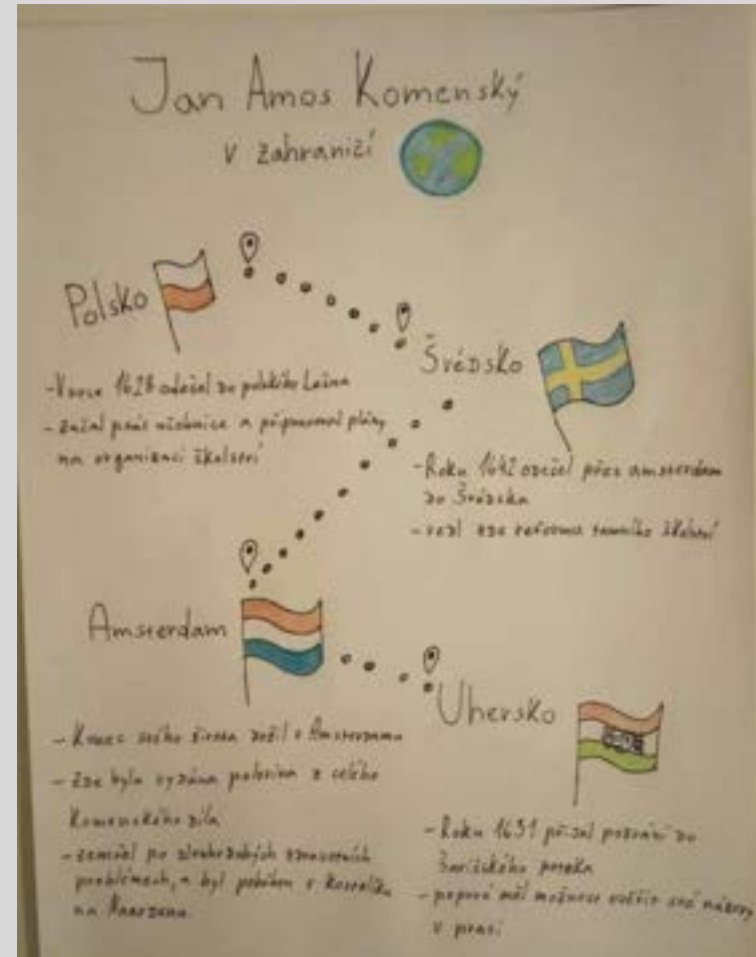 Jan Amos Komenský
v zahraničí
Polsko
- V roce 1628 odešel do polského Lešna
- začal psát učebnice a připravoval plány
na organizaci školství
Švédsko
- Roku 1642 odešel přes amsterdam
do Švédska
- vedl zde reformu tamního školství
Amsterdam
- Konec svého života dožil v Amsterdamu
- Zde byla vydána polovina z celého
Komenského díla
- zemřel po dlouhodobých zdravotních
problémech, a byl pohřben v kostelíku
na Naardenu.
Uhersko
- Roku 1631 přijal pozvání do
Šarišského potoka
- poprvé měl možnost ověřit své názory
v praxi